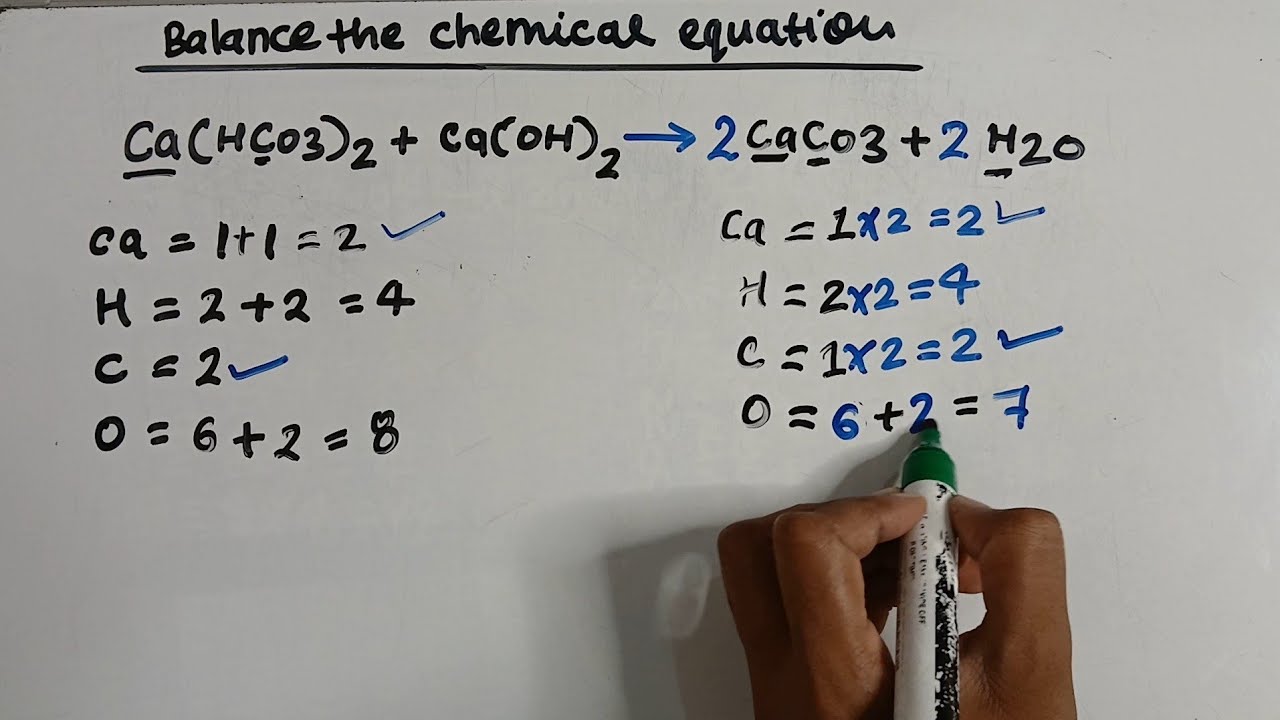 Balance the chemical equation
Ca(HCO3)2 + Ca(OH)2 → 2CaCO3 + 2 H2O
Ca = 1+1 = 2 ✓
H = 2 + 2 = 4
C = 2 ✓
O = 6 + 2 = 8
Ca = 1x2 = 2 ✓
H = 2x2 = 4
C = 1x2 = 2 ✓
O = 6 + 2 = 7